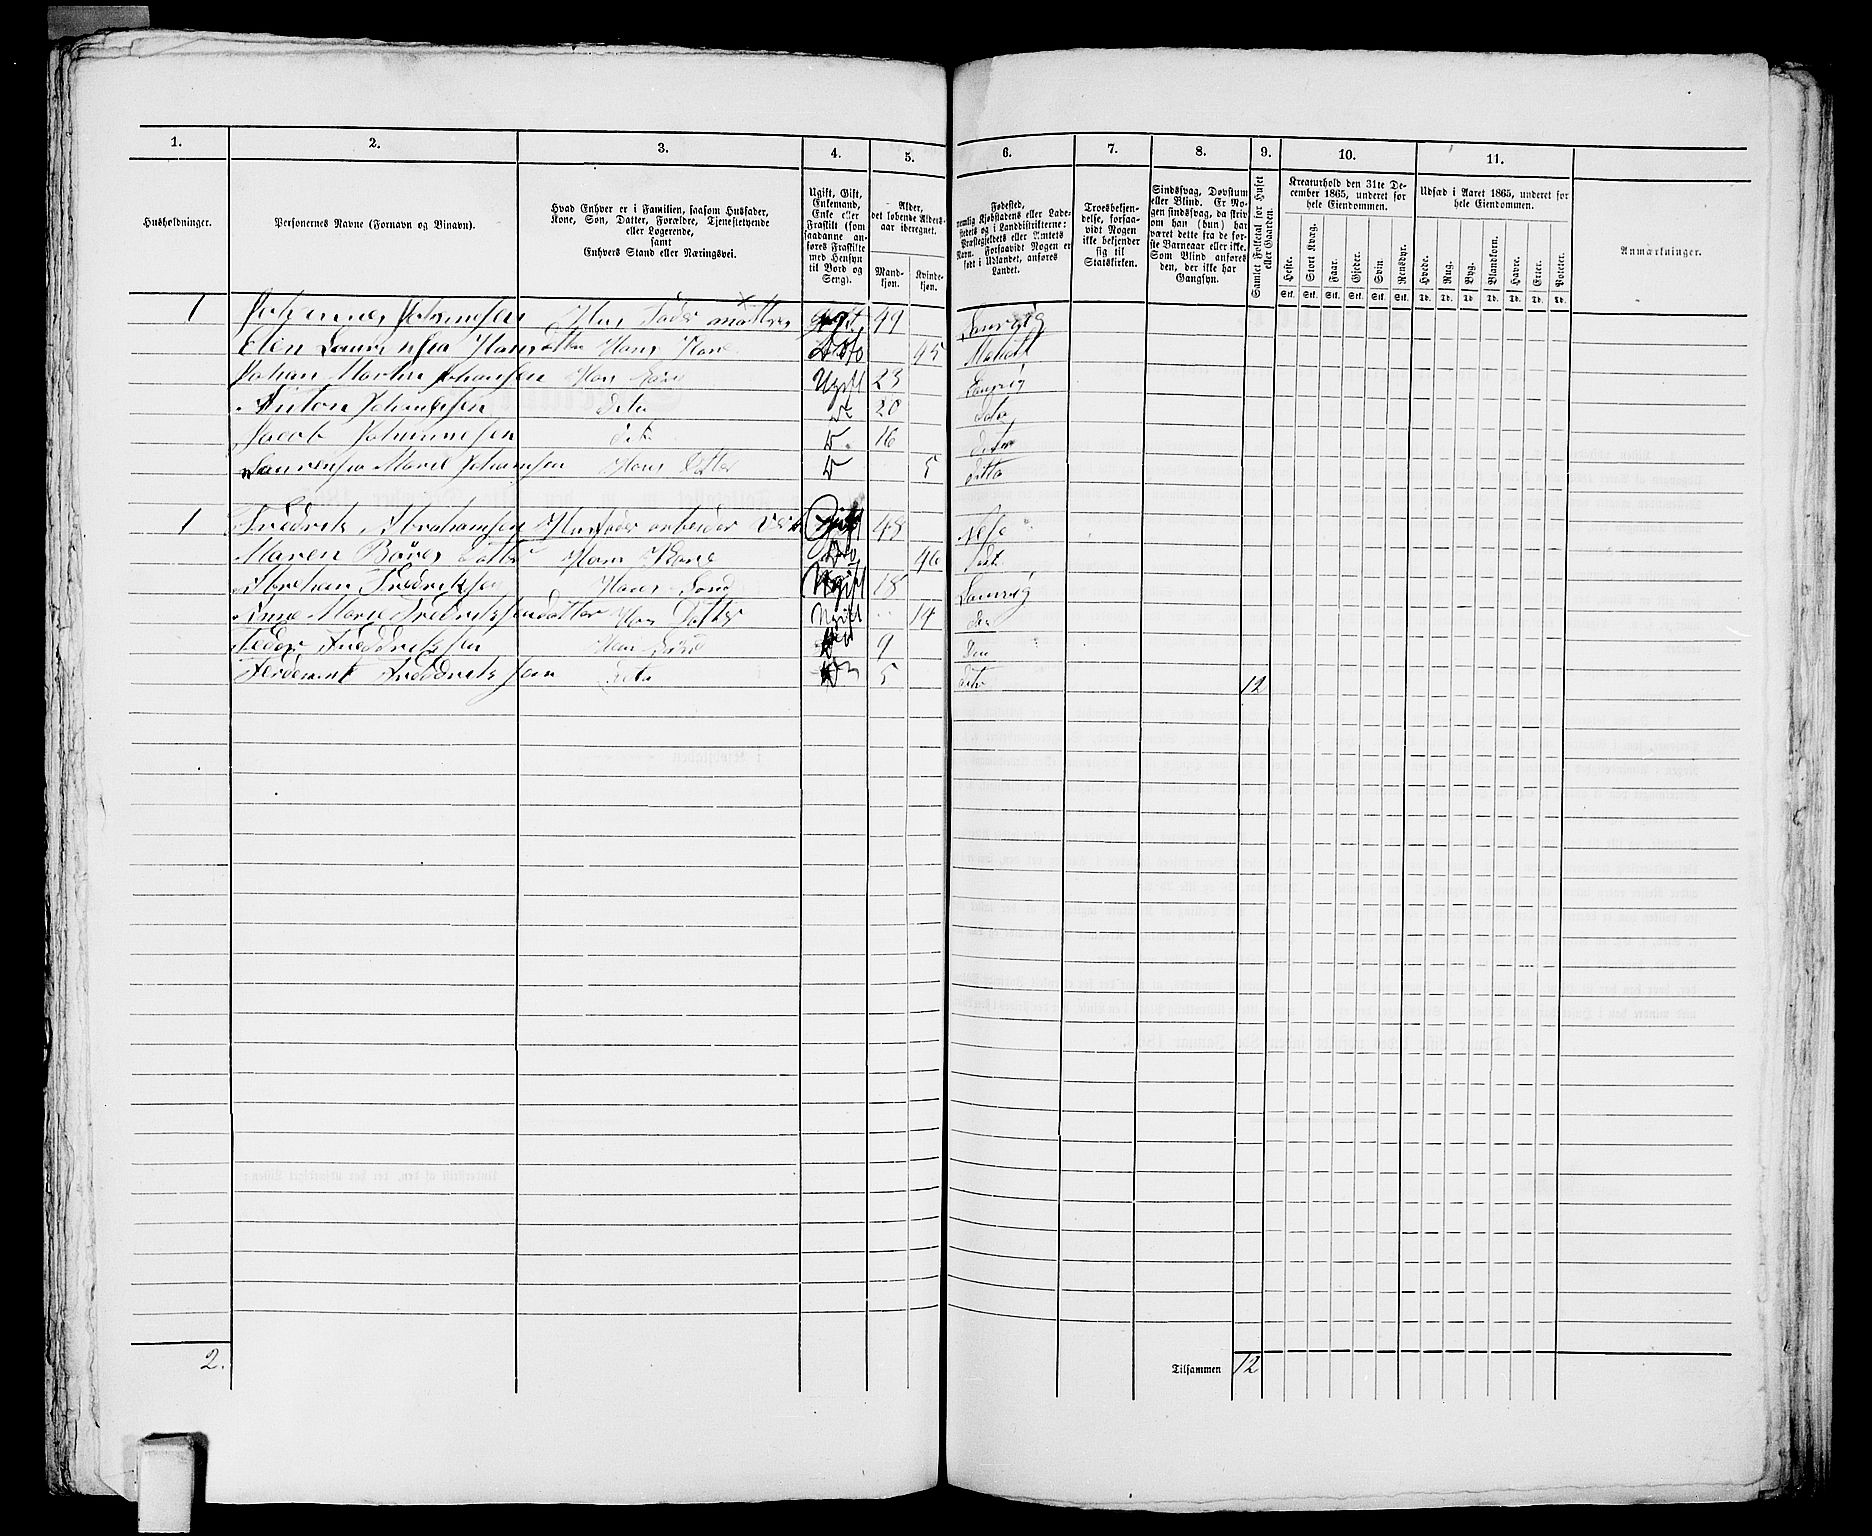 1. 2. 3. 4. 5. 6. 7. 8. 9. 10. 11.
Husholdninger.
Personernes Navne (Fornavn og Binavn).
Hvad Enhver er i Familien, saasom Husfader,
Kone, Søn, Datter, Forældre, Tjenestetyende
eller Logerende,
samt
Enhvers Stand eller Næringsvei.
Ugift, Gift,
Enkemand,
Enke eller
Fraskilt (som
saadanne an-
føres Fraskilte
med Hensyn
til Bord og
Seng).
Alder,
det løbende Alders-
aar iberegnet.
Mand-
kjøn.
Kvinde-
kjøn.
Fødested,
nemlig Kjøbstadens eller Lade-
stedets og i Landdistrikterne:
Præstegjeldets eller Amtets
Navn. Forsaavidt Nogen er
født i Udlandet, anføres
Landet.
Troesbekjen-
delse, forsaa-
vidt Nogen
ikke bekjender
sig til
Statskirken.
Sindssvag, Døvstum
eller Blind. Er No-
gen sindssvag, da skriv
om han (hun) har
været dette fra de før-
ste Barneaar eller ikke.
Som Blind anføres
den, der ikke har
Gangsyn.
Samlet Folketal for Huset
eller Gaarden.
Kreaturhold den 31te De-
cember 1865, underet for
hele Eiendommen.
Heste. Stort Kvæg. Faar. Gjeder. Svin. Rensdyr.
Stk. Stk. Stk. Stk. Stk. Stk.
Udsæd i Aaret 1865, underet for
hele Eiendommen.
Hvede. Rug. Byg. Blandkorn. Havre. Erter. Poteter.
Td. Td. Td. Td. Td. Td. Td.
Anmærkninger.
1 Johannes Johannesen Hus Fader Gift 49 Laurvig
Elen Hans Kone Dito 45
Johan Martin Johansen Hans Søn Ugift 23 Laurvig
Anton Johannesen dito D 20 dito
Jacob Johannesen dito D. 16 dito
Marie Johansen Hans Datter D 5 ditto
1 Fredrik Abrahamsen Husfader arbeider Gift 48
Maren Datter Hans Kone 46
Abraham Fredriksen Hans Sønd Ugift 18 Laurvig
Anne Marie Fredriksendatter Hans Datter Ugift 14
Fredriksen Hans Sønd 9
Fredriksen dito 5 dito 12
2. Tilsammen 12